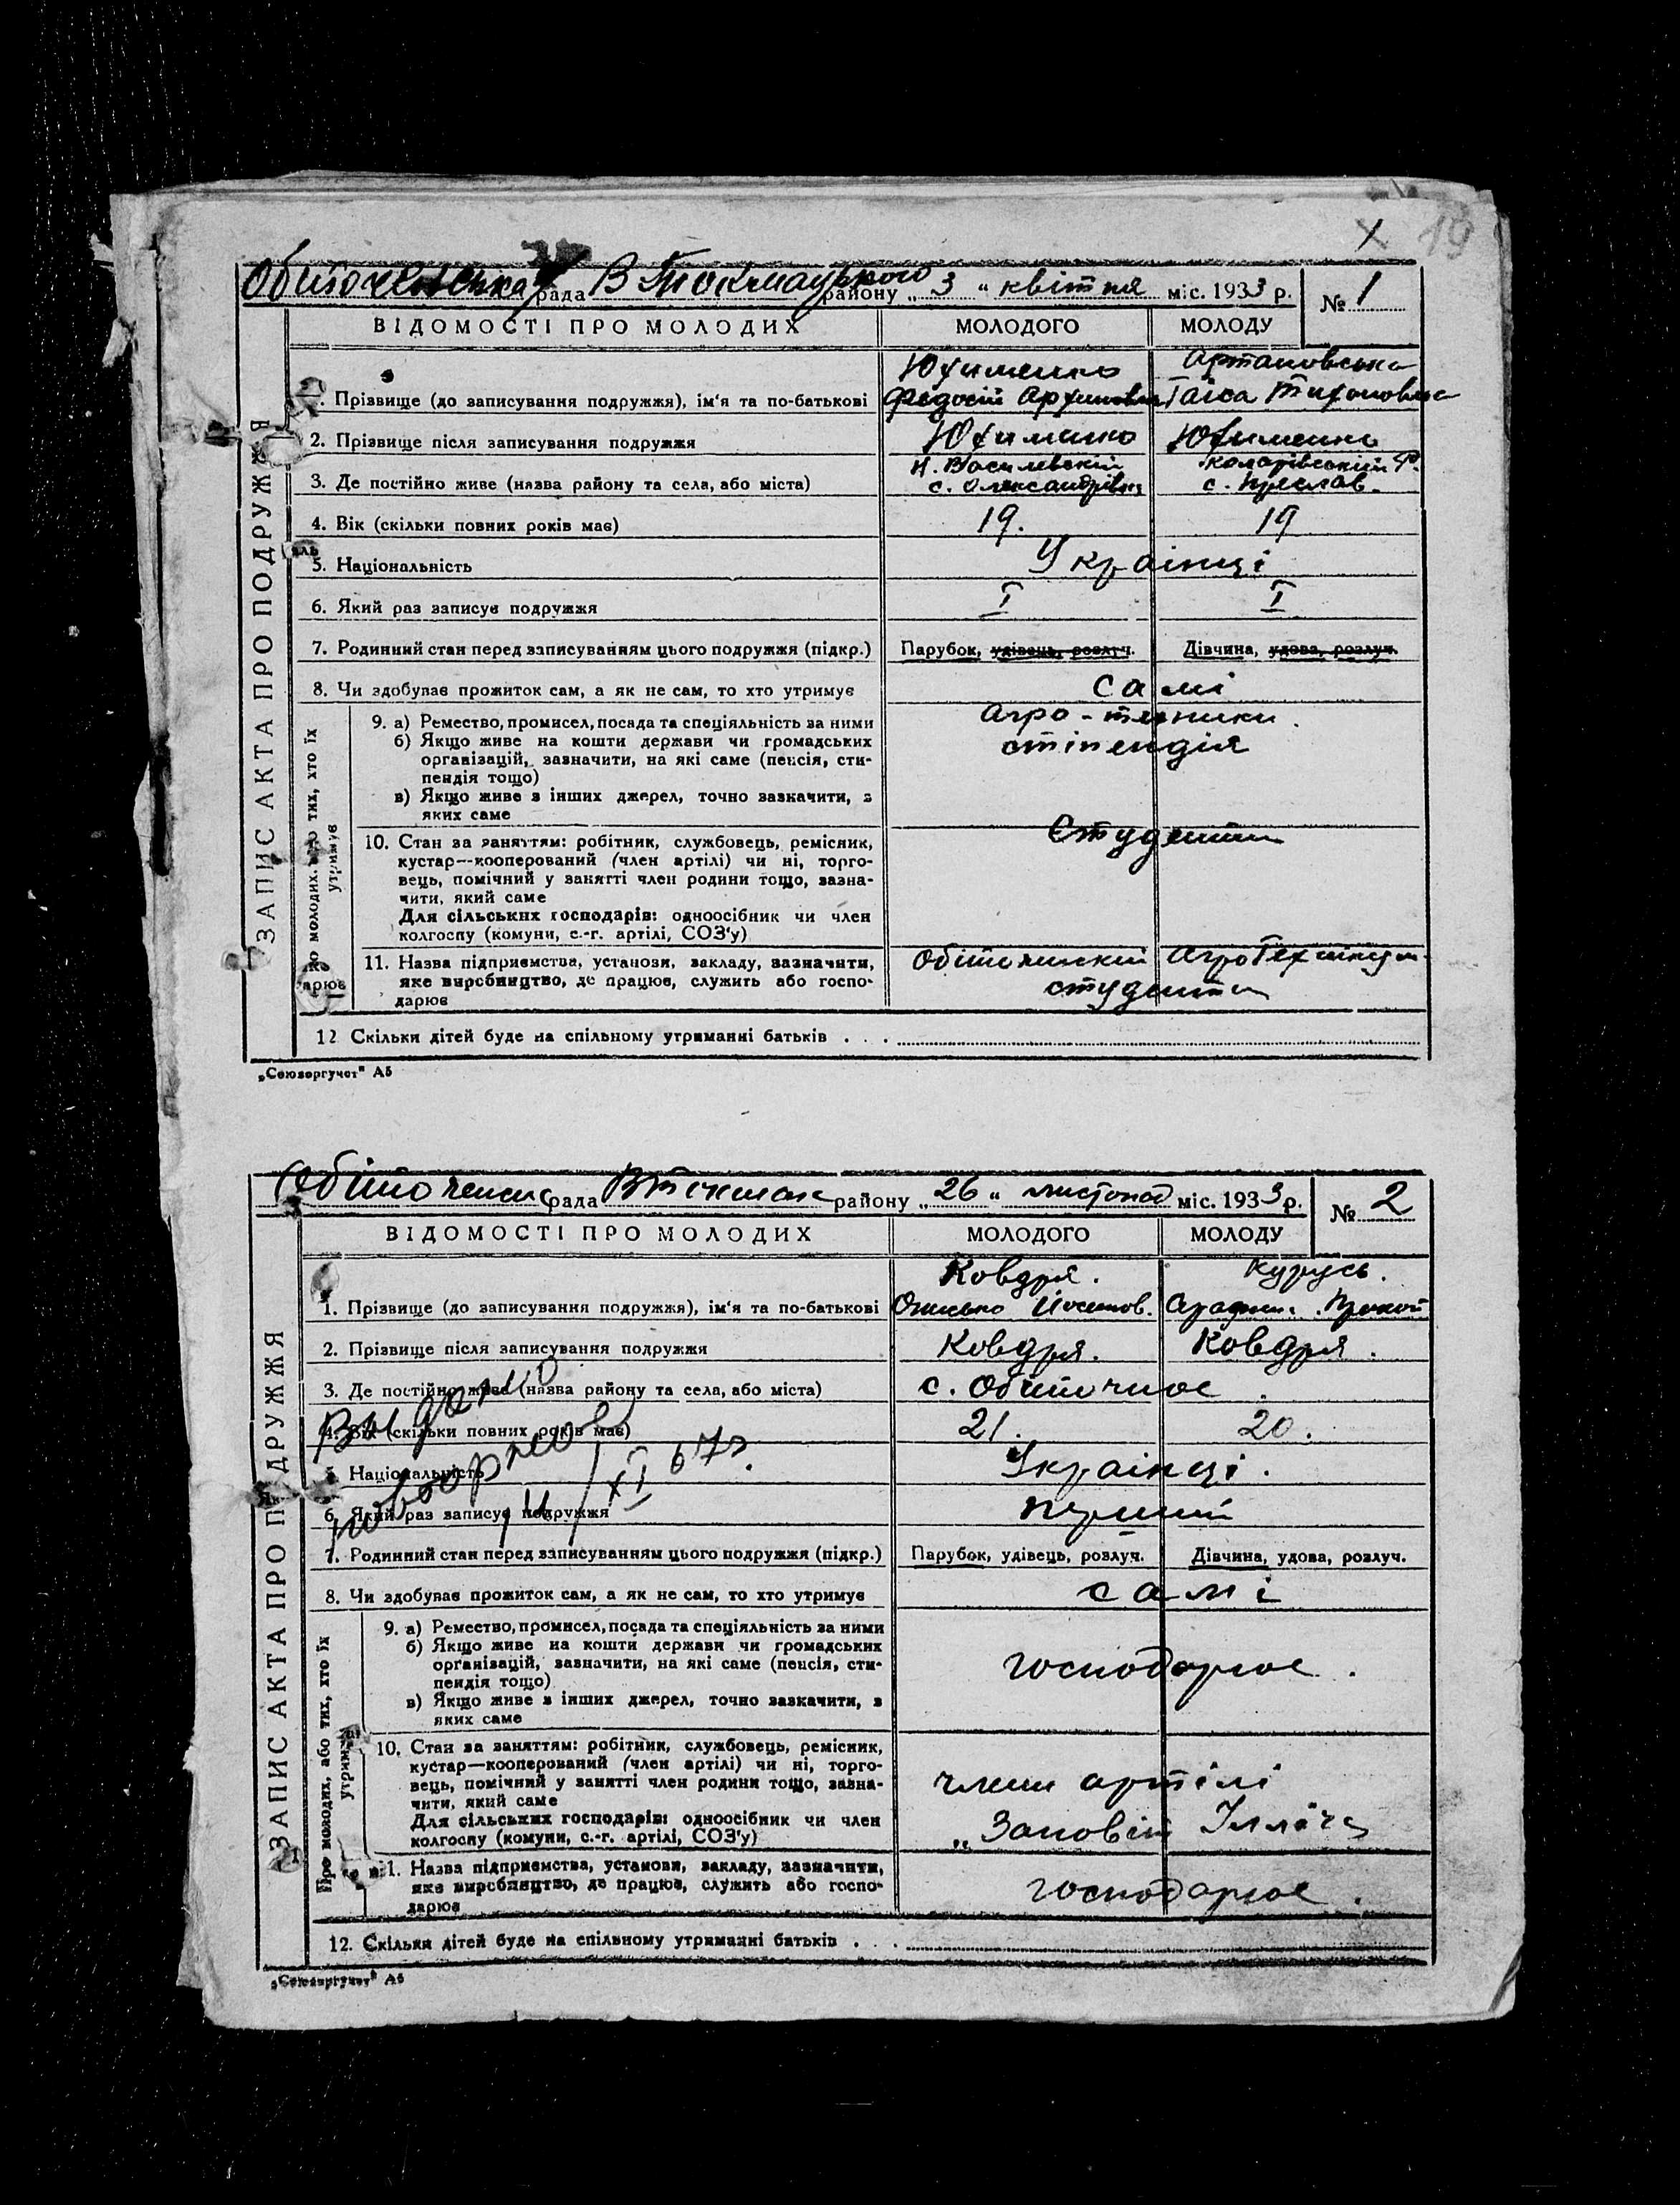 19
Обиточенська рада В Токмацького району „ 3 “ квітня міс. 1933 р. № 1
ЗАПИС АКТА ПРО ПОДРУЖЖЯ
ВІДОМОСТІ ПРО МОЛОДИХ МОЛОДОГО МОЛОДУ
Юхименко Артановська
1. Прізвище (до записування подружжя), ім'я та по-батькові Федосій Архипович Таїса Тихоновна
2. Прізвище після записування подружжя Юхименко Юхименко
Н. Василевський Коларівський р.
3. Де постійно живе (назва району та села, або міста) с. Олександрівка с. Преслав.
4. Вік (скільки повних років має) 19. 19
5. Національність Українці
6. Який раз записує подружжя I I
7. Родинний стан перед записуванням цього подружжя (підкр.) Парубок, удівець, розлуч. Дівчина, удова, розлуч.
8. Чи здобуває прожиток сам, а як не сам, то хто утримує самі
9. а) Ремество, промисел, посада та спеціяльність за ними агро-техники.
б) Якщо живе на кошти держави чи громадських стіпендія
організацій, зазначити, на які саме (пенсія, сти-
пендія тощо)
в) Якщо живе з інших джерел, точно зазкачити, з
яких саме
10. Стан за заняттям: робітник, службовець, ремісник, Студенти
кустар—кооперований (член артілі) чи ні, торго-
вець, помічний у занятті член родини тощо, зазна-
чити, який саме
Для сільських господарів: одноосібник чи член
колгоспу (комуни, с.-г. артілі, СОЗ'у)
11. Назва підприємства, установи, закладу, зазначити, Обіточинскій АгроТехнікум
яке виробництво, де працює, служить або госпо- студенти
дарює
12 Скільки дітей буде на спільному утриманні батьків . . .
„Союзоргучет" А5
Обіточенс рада В Токмак району „ 26 “ листопад міс. 1933 р. № 2
ЗАПИС АКТА ПРО ПОДРУЖЖЯ
ВІДОМОСТІ ПРО МОЛОДИХ МОЛОДОГО МОЛОДУ
Ковдря. Курусь.
1. Прізвище (до записування подружжя), ім'я та по-батькові Йосипов.
2. Прізвище після записування подружжя Ковдря. Ковдря.
3. Де постійно живе (назва району та села, або міста) с. Обиточное
4. Вік (скільки повних років має) 21. 20.
5. Національність Українці.
6. Який раз записує подружжя перший
Выдано
повторное
11/XI 67г.
7. Родинний стан перед записуванням цього подружжя (підкр.) Парубок, удівець, розлуч. Дівчина, удова, розлуч.
8. Чи здобуває прожиток сам, а як не сам, то хто утримує самі
Про молодих, або тих, хто їх утримує
9. а) Ремество, промисел, посада та спеціяльність за ними
б) Якщо живе на кошти держави чи громадських
організацій, зазначити, на які саме (пенсія, сти- господарює.
пендія тощо)
в) Якщо живе з інших джерел, точно зазкачити, з
яких саме
10. Стан за заняттям: робітник, службовець, ремісник,
кустар—кооперований (член артілі) чи ні, торго-
вець, помічний у занятті член родини тощо, зазна- члени артілі
чити, який саме
Для сільських господарів: одноосібник чи член „Заповіт Ілліча
колгоспу (комуни, с.-г. артілі, СОЗ'у)
11. Назва підприємства, установи, закладу, зазначити,
яке виробництво, де працює, служить або госпо- господарює.
дарює
12. Скільки дітей буде на спільному утриманні батьків . . .
„Союзоргучет" А5